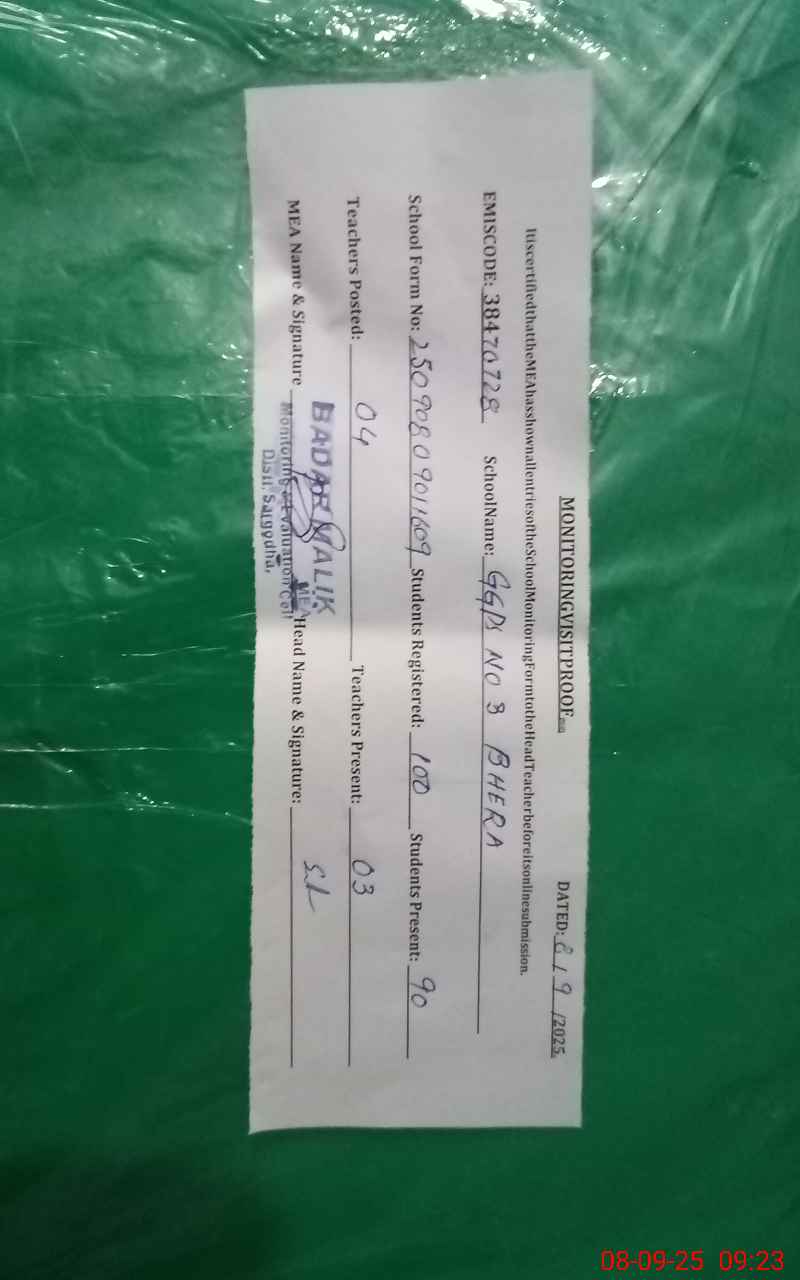 MONITORINGVISITPROOF
DATED: 8/9/2025.
ItiscertifiedthattheMEAhasshownallentriesoftheSchoolMonitoringFormtotheHeadTeacherbeforeitsonlinesubmission.
EMISCODE: 38470728 SchoolName: GGPS NO 3 BHERA
School Form No: 25090809011609 Students Registered: 100 Students Present: 90
Teachers Posted: 04 Teachers Present: 03
MEA Name & Signature Head Name & Signature:
BADAR MALIK
MEA
Monitoring & Evaluation Cell
Distt. Sargodha.
08-09-25 09:23